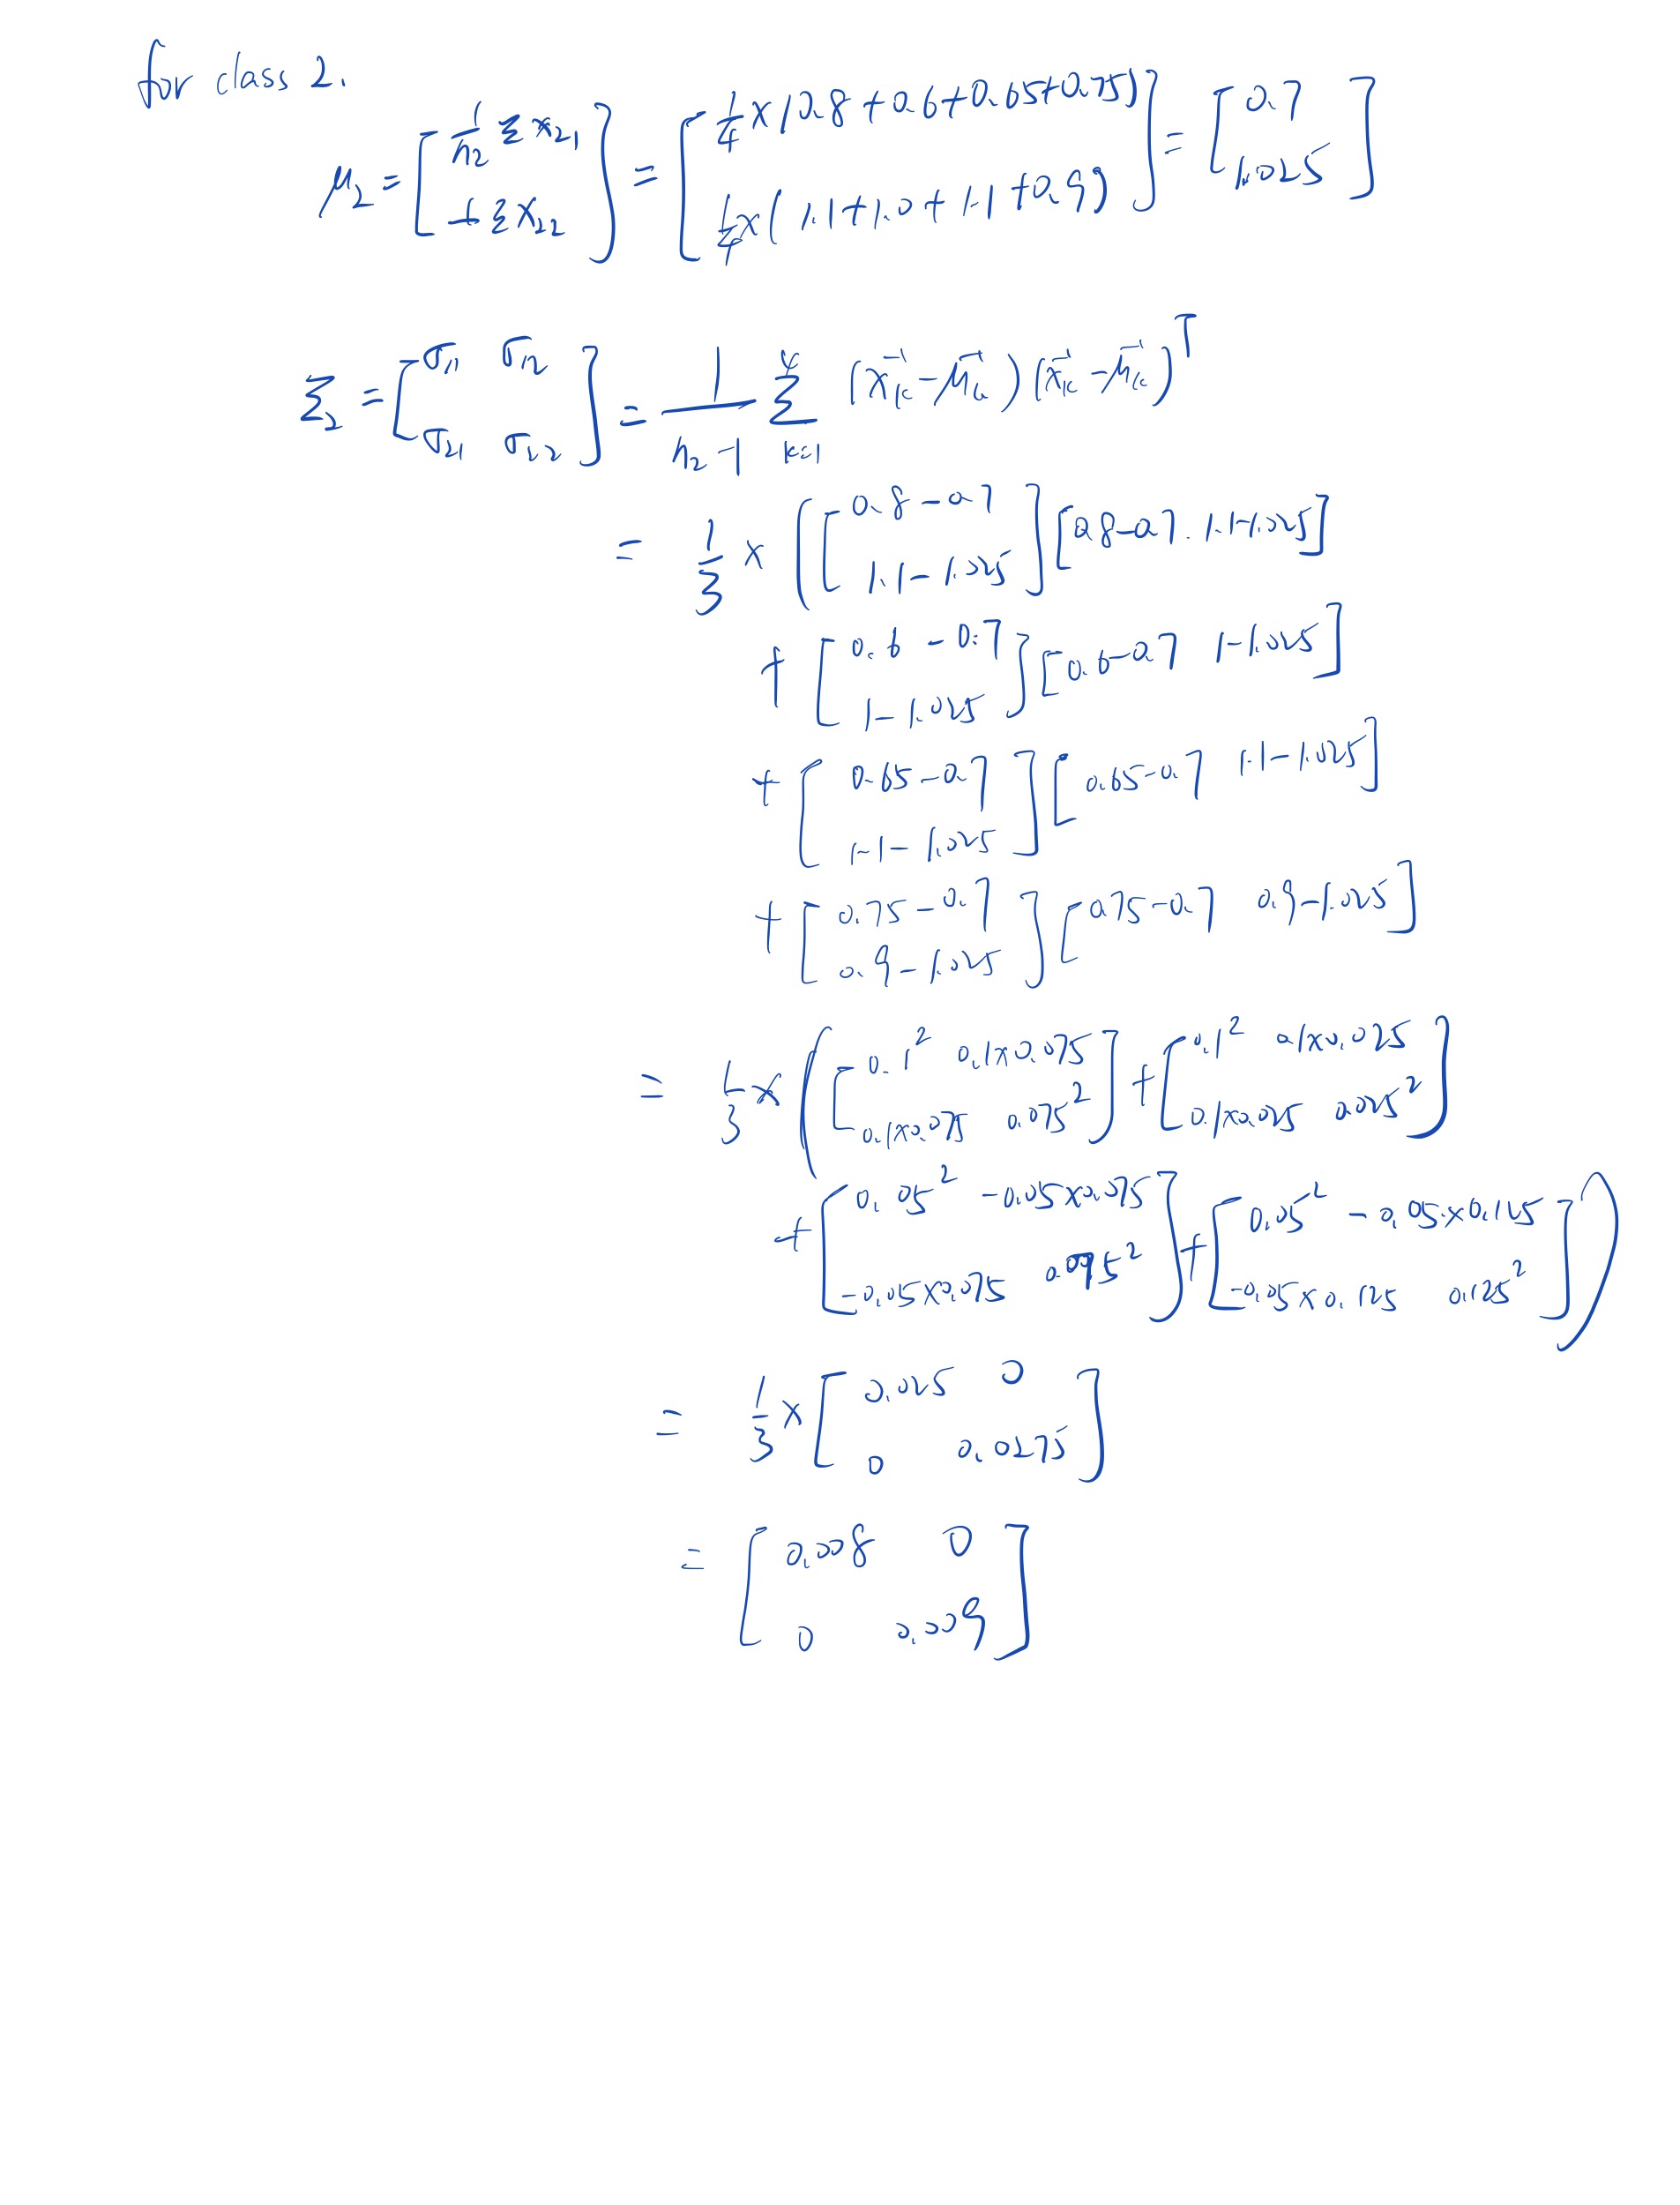 for class 2.
μ₂ = [ 1/n₂ Σ x₂₁ ; + Σ x₂₂ ] = [ 1/4 × (0.8 + 0.6 + 0.65 + 0.75) ; 1/4 × (1.1 + 1.0 + 1.1 + 0.9) ] = [ 0.7 ; 1.025 ]
Σ₂ = [ σ₁₁ σ₁₂ ; σ₂₁ σ₂₂ ] = 1/(n₂ - 1) Σ k=1 (x⃗k - μ⃗k)(x⃗k - μ⃗k)ᵀ
= 1/3 × ( [ 0.8 - 0.7 ; 1.1 - 1.025 ] [ 0.8 - 0.7 . 1.1 - 1.025 ]
+ [ 0.6 - 0.7 ; 1 - 1.025 ] [ 0.6 - 0.7 1 - 1.025 ]
+ [ 0.65 - 0.7 ; 1.1 - 1.025 ] [ 0.65 - 0.7 1.1 - 1.025 ]
+ [ 0.75 - 0.7 ; 0.9 - 1.025 ] [ 0.75 - 0.7 0.9 - 1.025 ]
= 1/3 × ( [ 0.1² 0.1×0.075 ; 0.1×0.075 0.075² ] + [ 0.1² 0.1×0.025 ; 0.1×0.025 0.025² ]
+ [ 0.05² -0.05×0.075 ; -0.05×0.075 0.075² ] + [ 0.05² -0.05×0.125 ; -0.05×0.125 0.125² ] )
= 1/3 × [ 0.025 0 ; 0 0.0275 ]
= [ 0.008 0 ; 0 0.009 ]